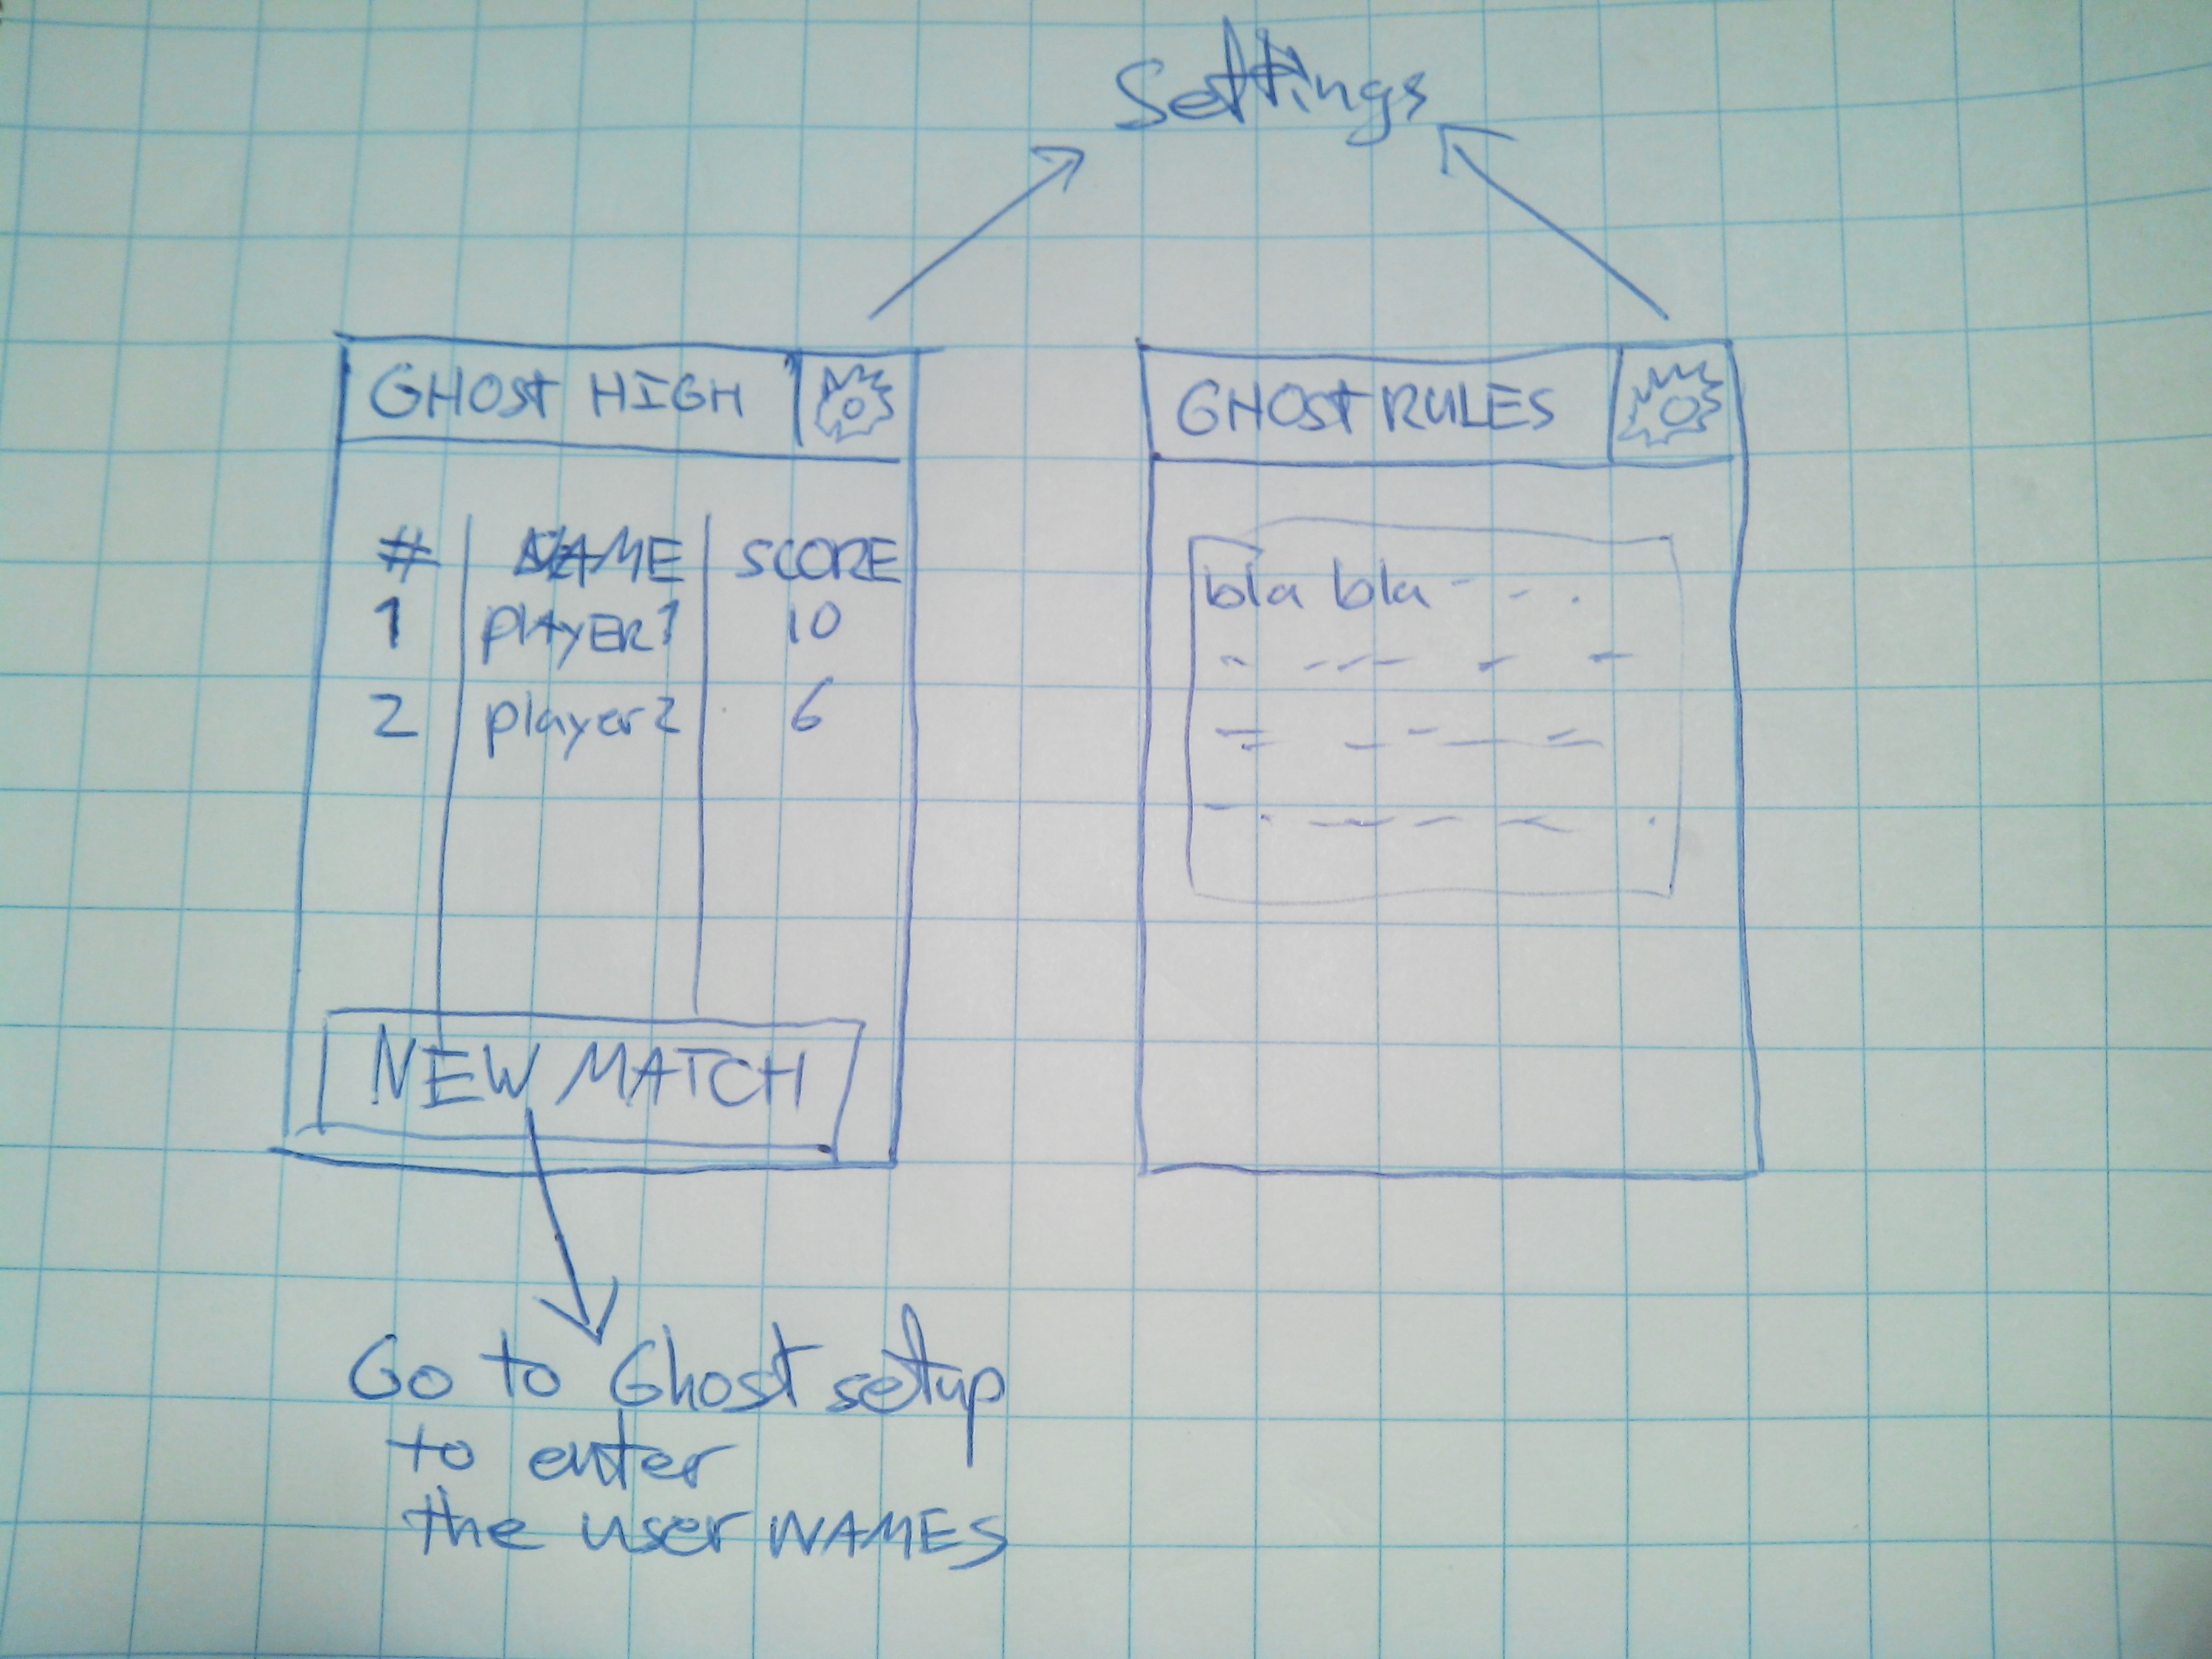 Settings
GHOST HIGH
# NAME SCORE
1 PLAYER1 10
2 player2 6
NEW MATCH
Go to Ghost setup
to enter
the user NAMES
GHOST RULES
bla bla - - .